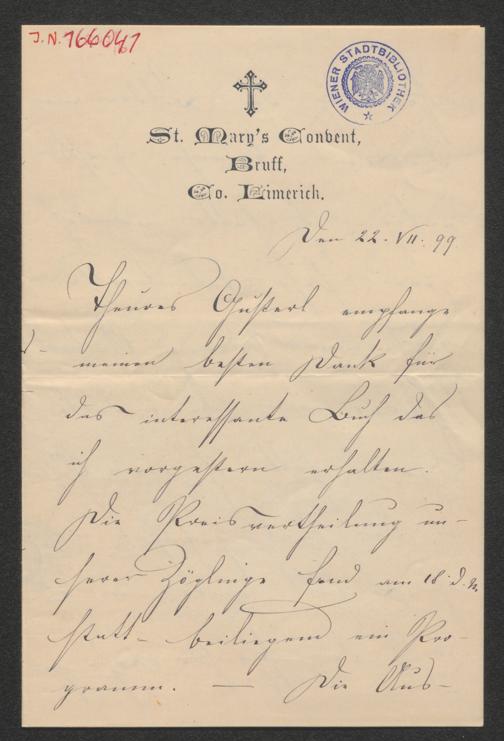 J.N. 166041
WIENER STADTBIBLIOTHEK
St. Mary's Convent,
Bruff,
Co. Limerick.
Den 22. VII. 99
Theures Gusterl empfange
meinen besten Dank für
das interessante Buch das
ich vorgestern erhalten.
Die Preisvertheilung un-
serer Zöglinge fand am 18. d. M.
statt – beiliegend ein Pro-
gramm. — Die Aus-